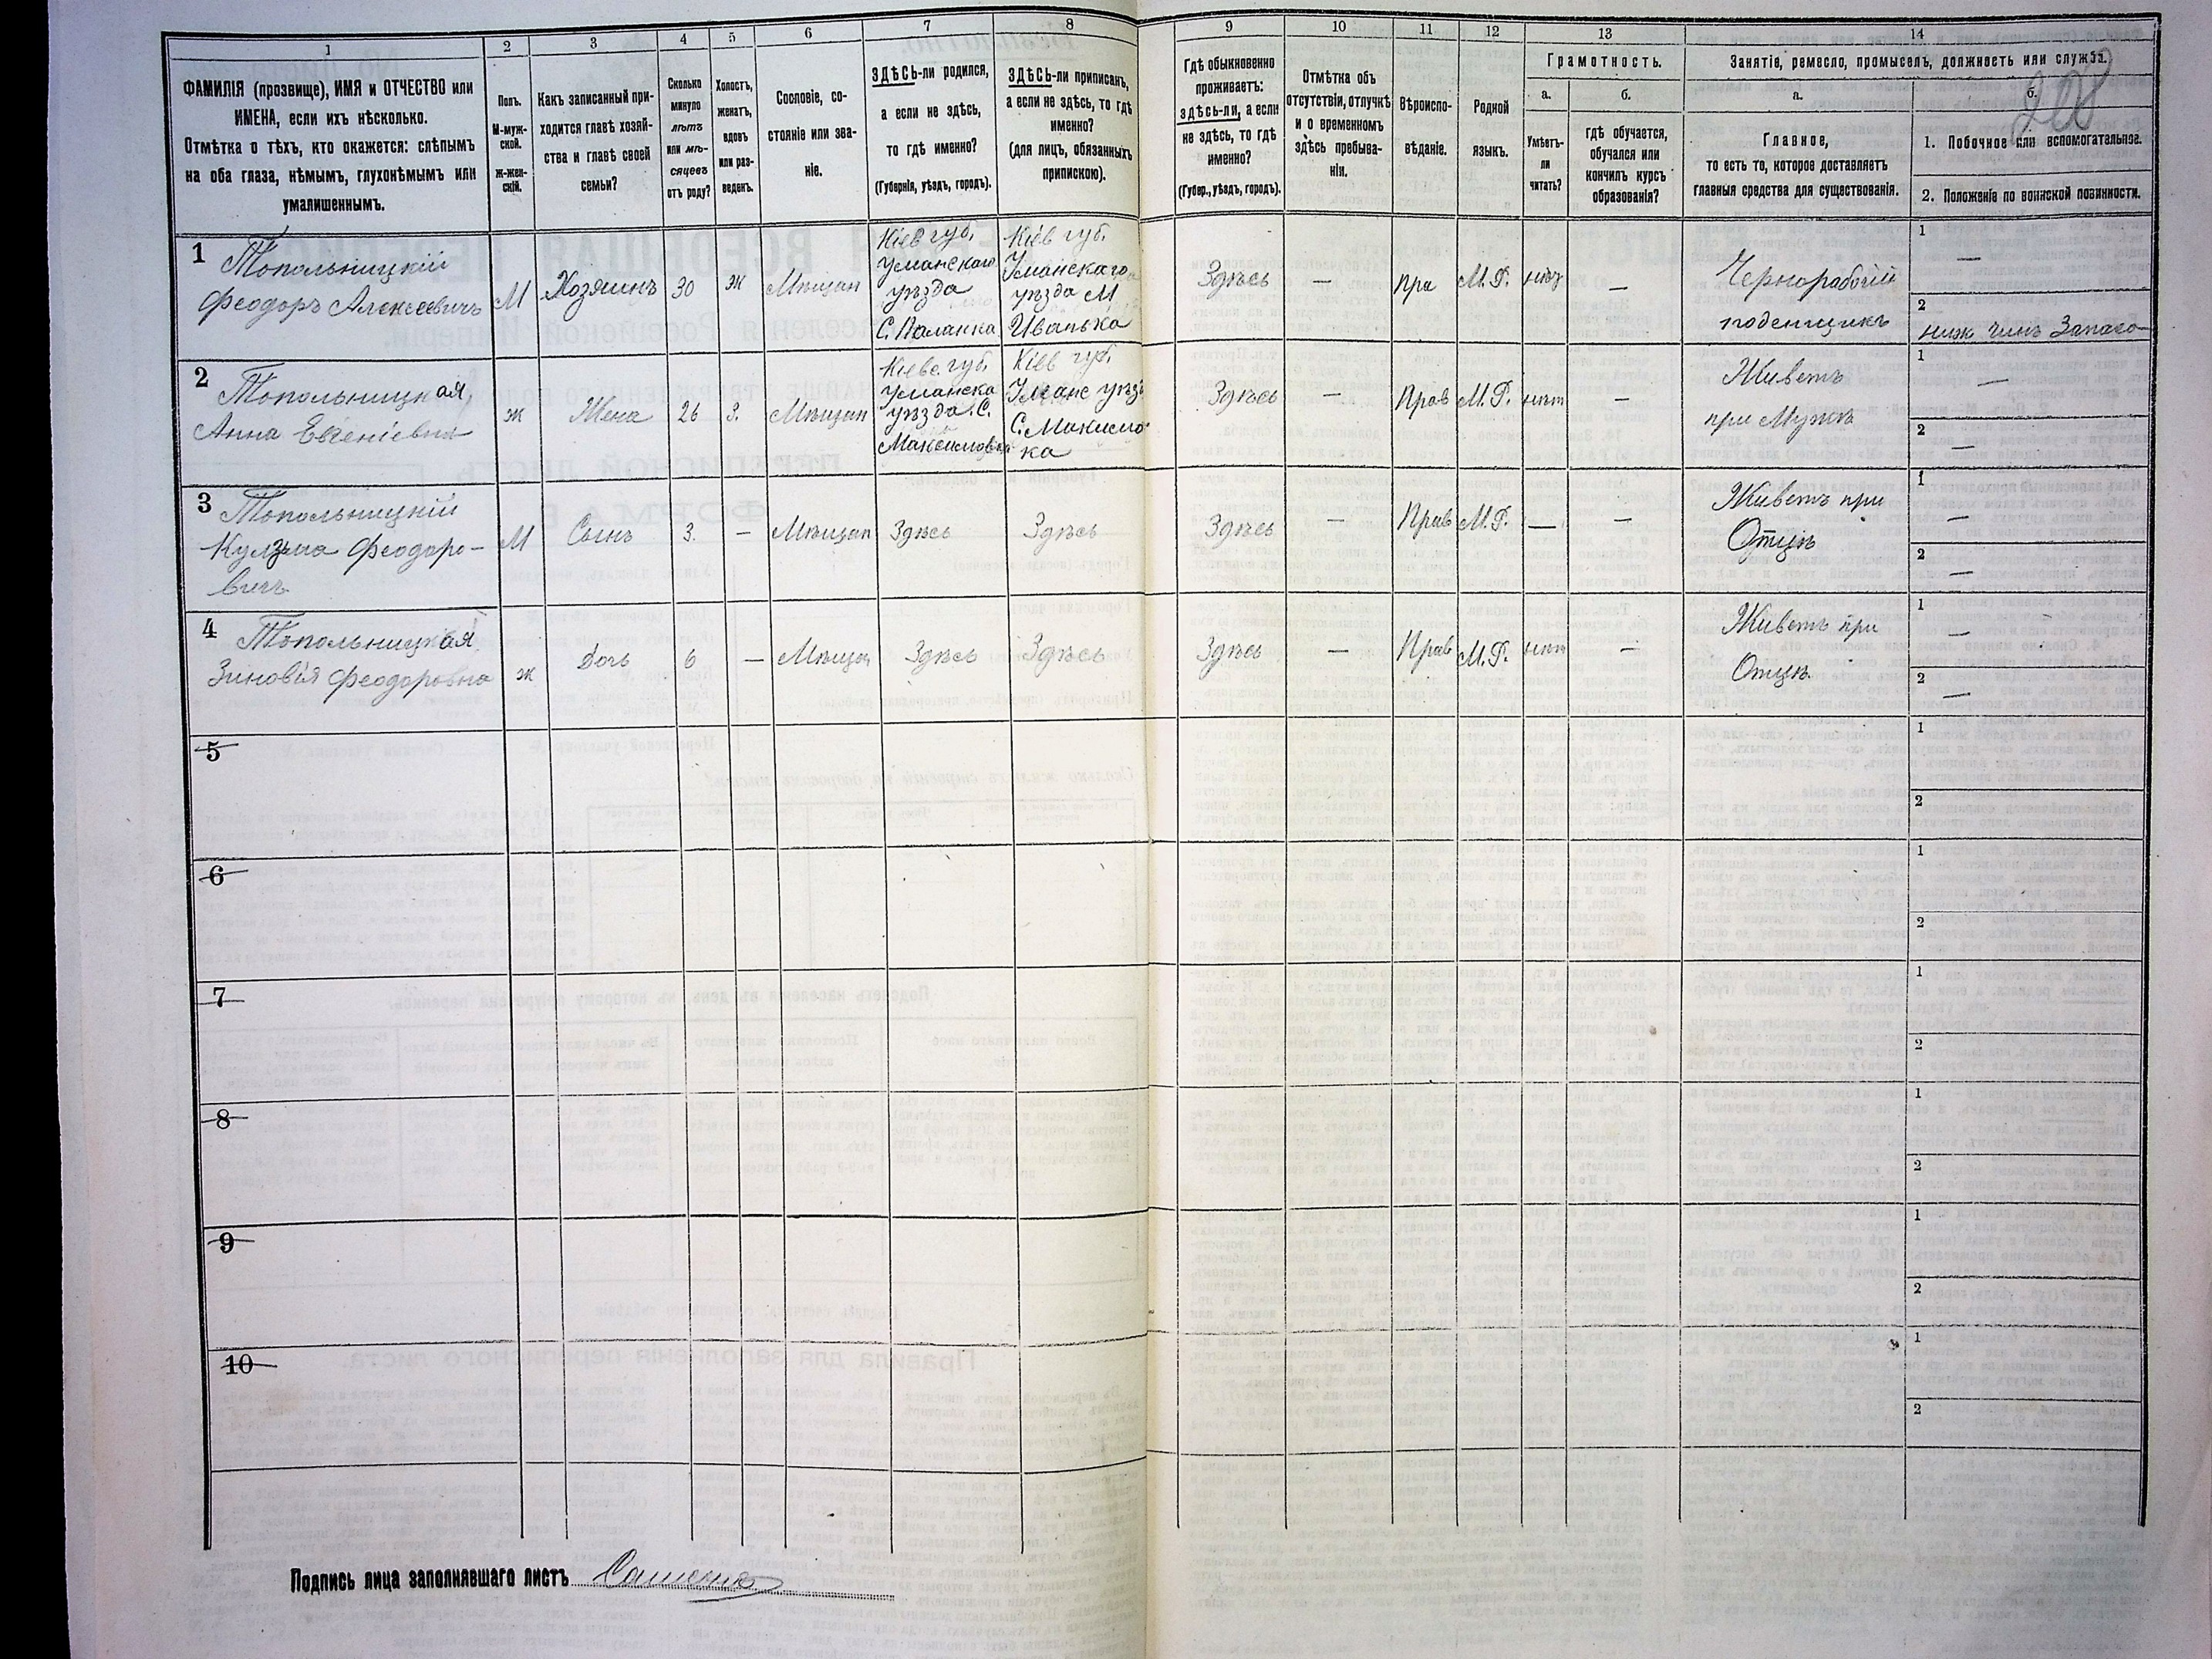 1
2
3
4
5
6
7
8
9
10
11
12
13
14
ФАМИЛІЯ (прозвище), ИМЯ и ОТЧЕСТВО или
ИМЕНА, если ихъ нѣсколько.
Отмѣтка о тѣхъ, кто окажется: слѣпымъ
на оба глаза, нѣмымъ, глухонѣмымъ или
умалишеннымъ.
Полъ.
М-муж-
ской.
ж-жен-
скій.
Какъ записанный при-
ходится главѣ хозяй-
ства и главѣ своей
семьи?
Сколько
минуло
лѣтъ
или мѣ-
сяцевъ
отъ роду?
Холостъ,
женатъ,
вдовъ
или раз-
веденъ.
Сословіе, со-
стояніе или зва-
ніе.
ЗДѢСЬ-ли родился,
а если не здѣсь,
то гдѣ именно?
(Губернія, уѣздъ, городъ).
ЗДѢСЬ-ли приписанъ,
а если не здѣсь, то гдѣ
именно?
(для лицъ, обязанныхъ
припискою).
Гдѣ обыкновенно
проживаетъ:
здѣсь-ли, а если
не здѣсь, то гдѣ
именно?
(Губер., уѣздъ, городъ).
Отмѣтка объ
отсутствіи, отлучкѣ
и о временномъ
здѣсь пребыва-
ніи.
Вѣроиспо-
вѣданіе.
Родной
языкъ.
Грамотность.
а.
Умѣетъ-
ли
читать?
б.
гдѣ обучается,
обучался или
кончилъ курсъ
образованія?
Занятіе, ремесло, промыселъ, должность или служба.
а.
Главное,
то есть то, которое доставляетъ
главныя средства для существованія.
б.
208
1. Побочное или вспомогательное.
2. Положеніе по воинской повинности.
1
Топольницкій
Феодоръ Алексеевичъ
М
Хозяинъ
30
ж
Мѣщан
Кіев губ.
Уманскаго
уѣзда
С. Паланка
Кіев губ.
Уманскаго
уѣзда М
Иванька
Здѣсь
—
Пра
М.Р.
нѣт
—
Чернорабочій
поденщикъ
1
—
2
ниж чинъ Запаса
2
Топольницкая,
Анна Евгеніевна
ж
Жена
26
З.
Мѣщан
Кіевс. губ.
Уманска
уѣзда. С.
Максимовка
Кіев губ.
Уманс уѣз
С. Максимо
ка
Здѣсь
—
Прав
М.Р.
нѣт
—
Живетъ
при Мужѣ
1
—
2
—
3
Топольницкій
Кузьма Феодоро-
вичъ
М
Сынъ
3.
—
Мѣщан
Здѣсь
Здѣсь
Здѣсь
—
Прав
М.Р.
—
—
Живетъ при
Отцѣ
1
—
2
—
4
Топольницкая
Зиновія Феодоровна
ж
Дочь
6
—
Мѣщан
Здѣсь
Здѣсь
Здѣсь
—
Прав
М.Р.
нѣт
—
Живетъ при
Отцѣ.
1
—
2
—
5
1
2
6
1
2
7
1
2
8
1
2
9
1
2
10
1
2
Подпись лица заполнявшаго листъ